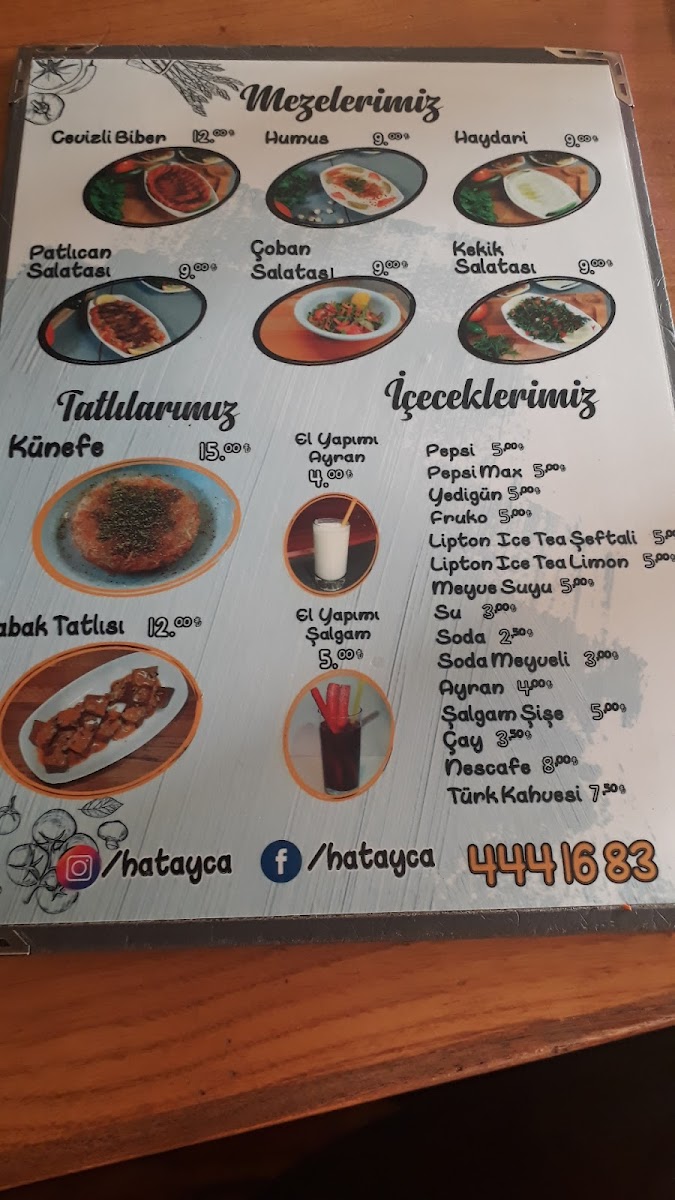 Mezelerimiz
Cevizli Biber 12.00₺
Humus 9.00₺
Haydari 9.00₺
Patlıcan
Salatası 9.00₺
Çoban
Salatası 9.00₺
Kekik
Salatası 9.00₺
Tatlılarımız
Künefe 15.00₺
abak Tatlısı 12.00₺
El Yapımı
Ayran
4.00₺
El Yapımı
Şalgam
5.00₺
İçeceklerimiz
Pepsi 5.00₺
Pepsi Max 5.00₺
Yedigün 5.00₺
Fruko 5.00₺
Lipton Ice Tea Şeftali 5.00
Lipton Ice Tea Limon 5.00₺
Meyve Suyu 5.00₺
Su 3.00₺
Soda 2.50₺
Soda Meyveli 3.00₺
Ayran 4.00₺
Şalgam Şişe 5.00₺
Çay 3.50₺
Nescafe 8.00₺
Türk Kahvesi 7.50₺
/hatayca
f /hatayca
444 16 83